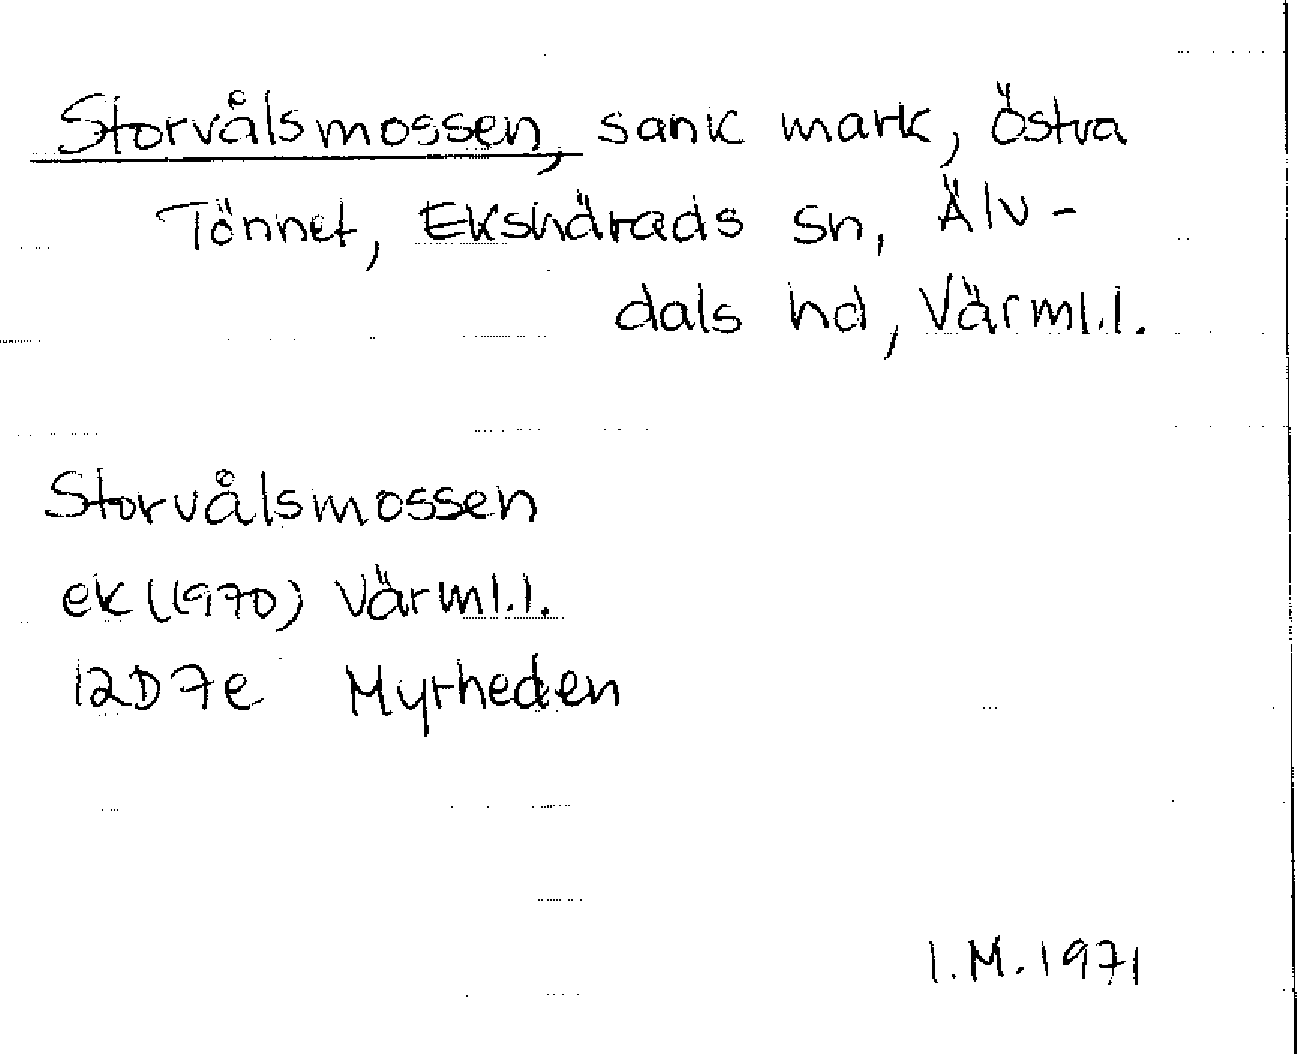 Storvålsmossen, sank mark, Östra
Tönnet, Ekshärads sn, Älv-
dals hd, Värml.l.
Storvålsmossen
ek (1970) Värml.l.
12D7e Myrheden
I.M. 1971